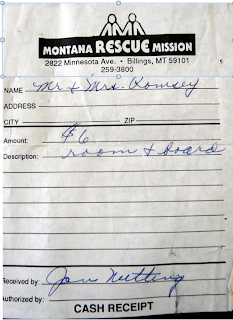 MONTANA RESCUE MISSION
2822 Minnesota Ave. • Billings, MT 59101
259-3800
NAME Mr & Mrs. Romsey
ADDRESS
CITY ZIP
Amount: $6
Description: room & board
Received by: Jan Nutting
Authorized by:
CASH RECEIPT